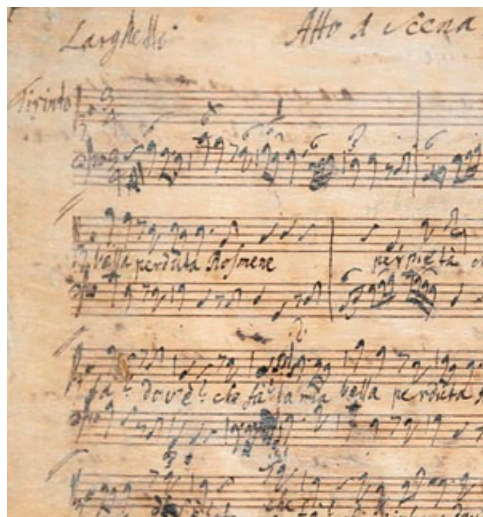 Larghetto Atto 1 Scena
Tirinto
bella perduta Rosmene per pietà
dov'è? che fà? la mia bella perduta